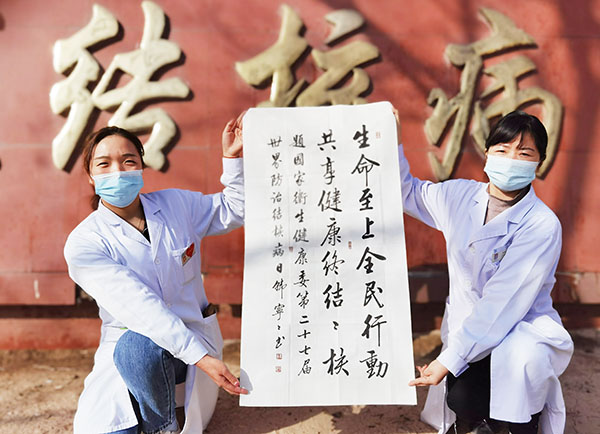 结核病
生命至上全民行動
共享健康终结〻核
題国家衛生健康委第二十七届
世界防治结核病日 寧〻书